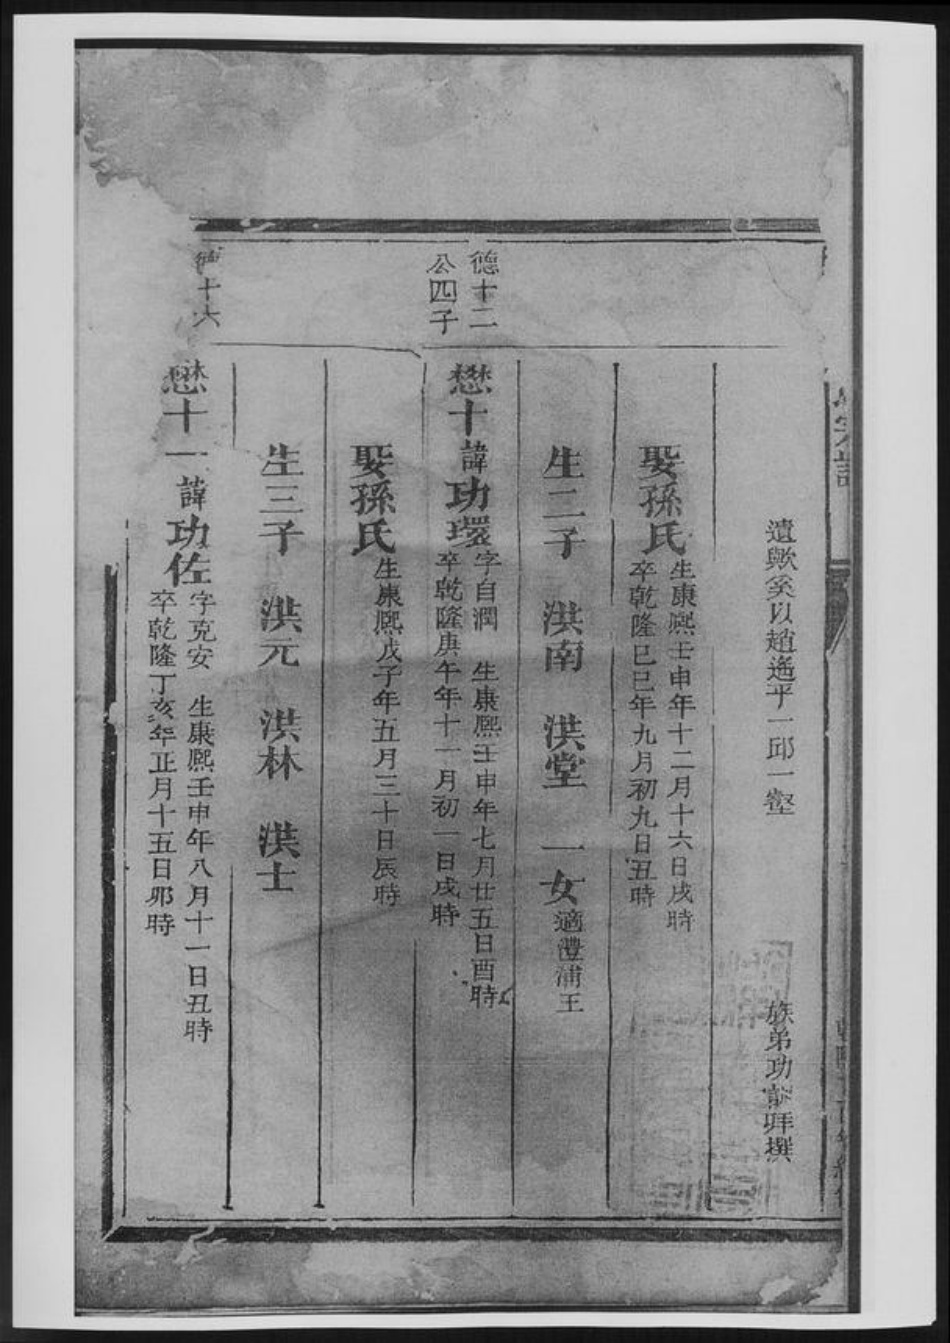 遺歟奚以趙遙乎一邱一壑 族弟功 拜撰
娶孫氏 生康熙壬申年十二月十六日戌時
卒乾隆己巳年九月初九日丑時
生二子 洪南 洪堂 一女 適澧浦王
德十二
公四子
懋十 諱 功環 字自潤 生康熙壬申年七月廿五日酉時
卒乾隆庚午年十一月初一日戌時
娶孫氏 生康熙戊子年五月三十日辰時
生三子 洪元 洪林 洪士
德十六
懋十一 諱 功佐 字克安 生康熙壬申年八月十一日丑時
卒乾隆丁亥年正月十五日卯時